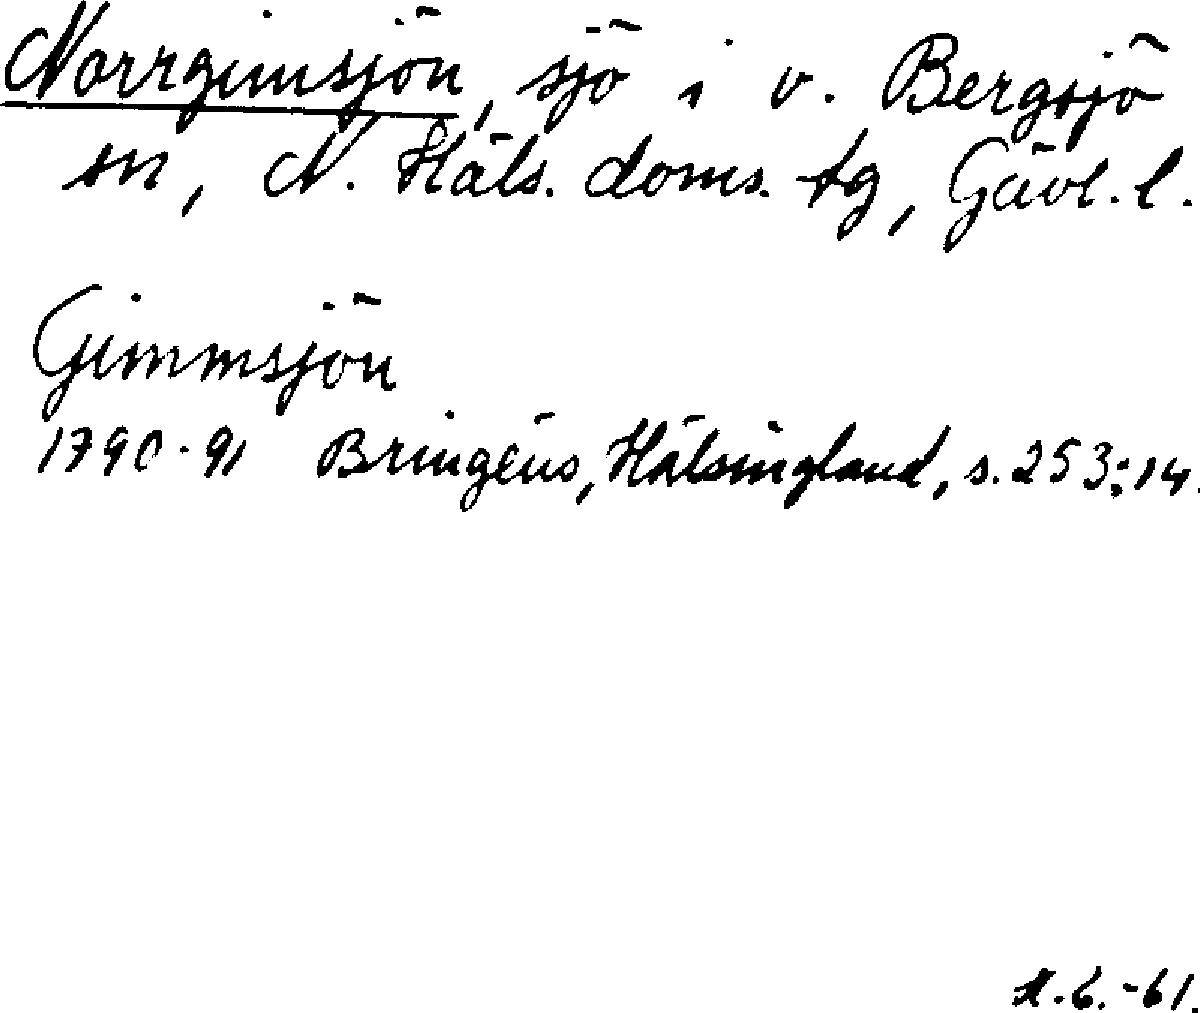 Norrgimsjön, sjö i v. Bergsjö
sn, N. Häls. doms. tg, Gävl. l.
Gimmsjön
1790-91 Bringéus, Hälsingland, s. 253:14.
-61.